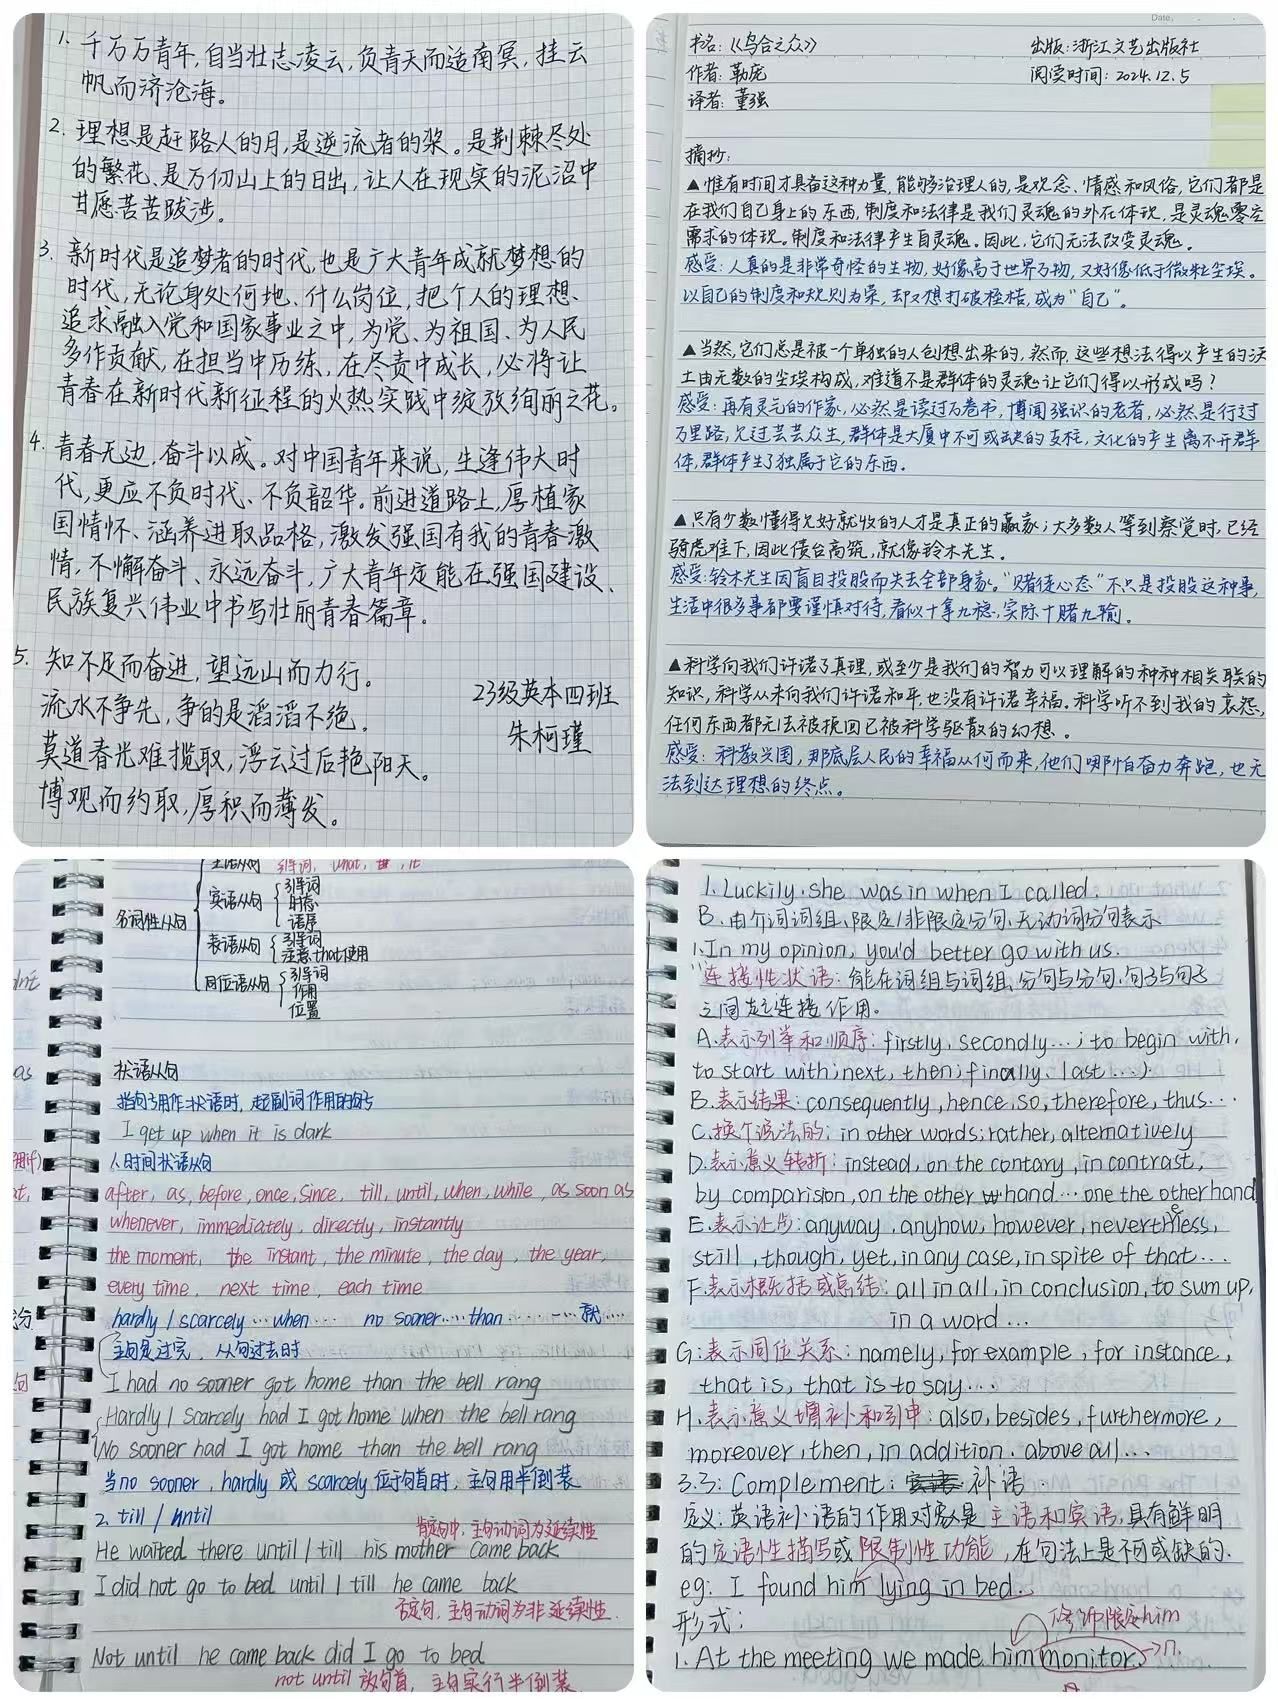 1. 千万万青年,自当壮志凌云,负青天而适南冥,挂云
帆而济沧海。
2. 理想是赶路人的月,是逆流者的桨。是荆棘尽处
的繁花、是万仞山上的日出,让人在现实的泥沼中
甘愿苦苦跋涉。
3. 新时代是追梦者的时代,也是广大青年成就梦想的
时代,无论身处何地、什么岗位,把个人的理想、
追求融入党和国家事业之中,为党、为祖国、为人民
多作贡献,在担当中历练,在尽责中成长,必将让
青春在新时代新征程的火热实践中绽放绚丽之花。
4. 青春无边,奋斗以成。对中国青年来说,生逢伟大时
代,更应不负时代、不负韶华。前进道路上,厚植家
国情怀、涵养进取品格,激发强国有我的青春激
情,不懈奋斗、永远奋斗,广大青年定能在强国建设、
民族复兴伟业中书写壮丽青春篇章。
5. 知不足而奋进,望远山而力行。
流水不争先,争的是滔滔不绝。
莫道春光难揽取,浮云过后艳阳天。
博观而约取,厚积而薄发。
23级英本四班
朱柯瑾
Date
书名:《乌合之众》 出版:浙江文艺出版社
作者:勒庞 阅读时间:2024.12.5
译者:董强
摘抄:
▲惟有时间才具备这种力量,能够治理人的,是观念、情感和风俗,它们都是
在我们自己身上的东西,制度和法律是我们灵魂的外在体现,是灵魂零容
需求的体现。制度和法律产生自灵魂。因此,它们无法改变灵魂。
感受:人真的是非常奇怪的生物,好像高于世界万物,又好像低于微粒尘埃。
以自己的制度和规则为荣,却又想打破桎梏,成为“自己”。
▲当然,它们总是被一个单独的人创想出来的,然而,这些想法得以产生的沃
土由无数的尘埃构成,难道不是群体的灵魂让它们得以形成吗?
感受:再有灵气的作家,必然是读过万卷书,博闻强识的老者,必然是行过
万里路,见过芸芸众生,群体是大厦中不可或缺的支柱,文化的产生离不开群
体,群体产生了独属于它的东西。
▲只有少数懂得见好就收的人才是真正的赢家;大多数人等到察觉时,已经
骑虎难下,因此债台高筑,就像铃木先生。
感受:铃木先生因盲目投股而失去全部身家。“赌徒心态”不只是投股这种事,
生活中很多事都要谨慎对待,看似十拿九稳,实际十赌九输。
▲科学向我们许诺了真理,或至少是我们的智力可以理解的种种相关联的
知识,科学从未向我们许诺和平,也没有许诺幸福。科学听不到我的哀怨,
任何东西都无法被挽回已被科学驱散的幻想。
感受:科教兴国,那底层人民的幸福从何而来,他们哪怕奋力奔跑,也无
法到达理想的终点。
主语从句 引导词, what, it
名词性从句
宾语从句 引导词
时态
语序
表语从句 引导词
注意that使用
同位语从句 引导词
作用
位置
状语从句
指句子用作状语时,起副词作用的句子
I get up when it is dark
1.时间状语从句
after, as, before, once, since, till, until, when, while, as soon as
whenever, immediately, directly, instantly
the moment, the instant, the minute, the day, the year,
every time, next time, each time
hardly / scarcely … when … no sooner … than …… 就 …
主句是过完,从句过去时
I had no sooner got home than the bell rang
Hardly / scarcely had I got home when the bell rang
No sooner had I got home than the bell rang
当no sooner, hardly 或 scarcely 位于句首时,主句用半倒装
2. till / until
肯定句中,主句动词为延续性
He waited there until / till his mother came back
I did not go to bed until / till he came back
否定句,主句动词为非延续性.
Not until he came back did I go to bed
not until 放句首,主句实行半倒装.
1. Luckily, she was in when I called.
B. 由介词词组、限定/非限定分句、无动词分句表示
1. In my opinion, you'd better go with us.
“连接性状语:能在词组与词组、分句与分句、句子与句子
之间起连接作用。
A.表示列举和顺序:firstly, secondly…; to begin with,
to start with; next, then; finally, last …).
B.表示结果:consequently, hence, so, therefore, thus…
C.换个说法的:in other words; rather, alternatively
D.表示意义转折:instead, on the contary, in contrast,
by comparision, on the other hand … one the other hand
E.表示让步:anyway, anyhow, however, nevertheless,
still, though, yet, in any case, in spite of that …
F.表示概括或总结:all in all, in conclusion, to sum up,
in a word …
G:表示同位关系:namely, for example, for instance,
that is, that is to say …
H.表示意义增补和引申:also, besides, furthermore,
moreover, then, in addition, above all …
3.3: Complement: 补语.
定义:英语补语的作用对象是主语和宾语,具有鲜明
的定语性描写或限制性功能,在句法上是不可或缺的.
eg: I found him lying in bed.
形式: 修饰限定him
1. At the meeting we made him monitor. → n.